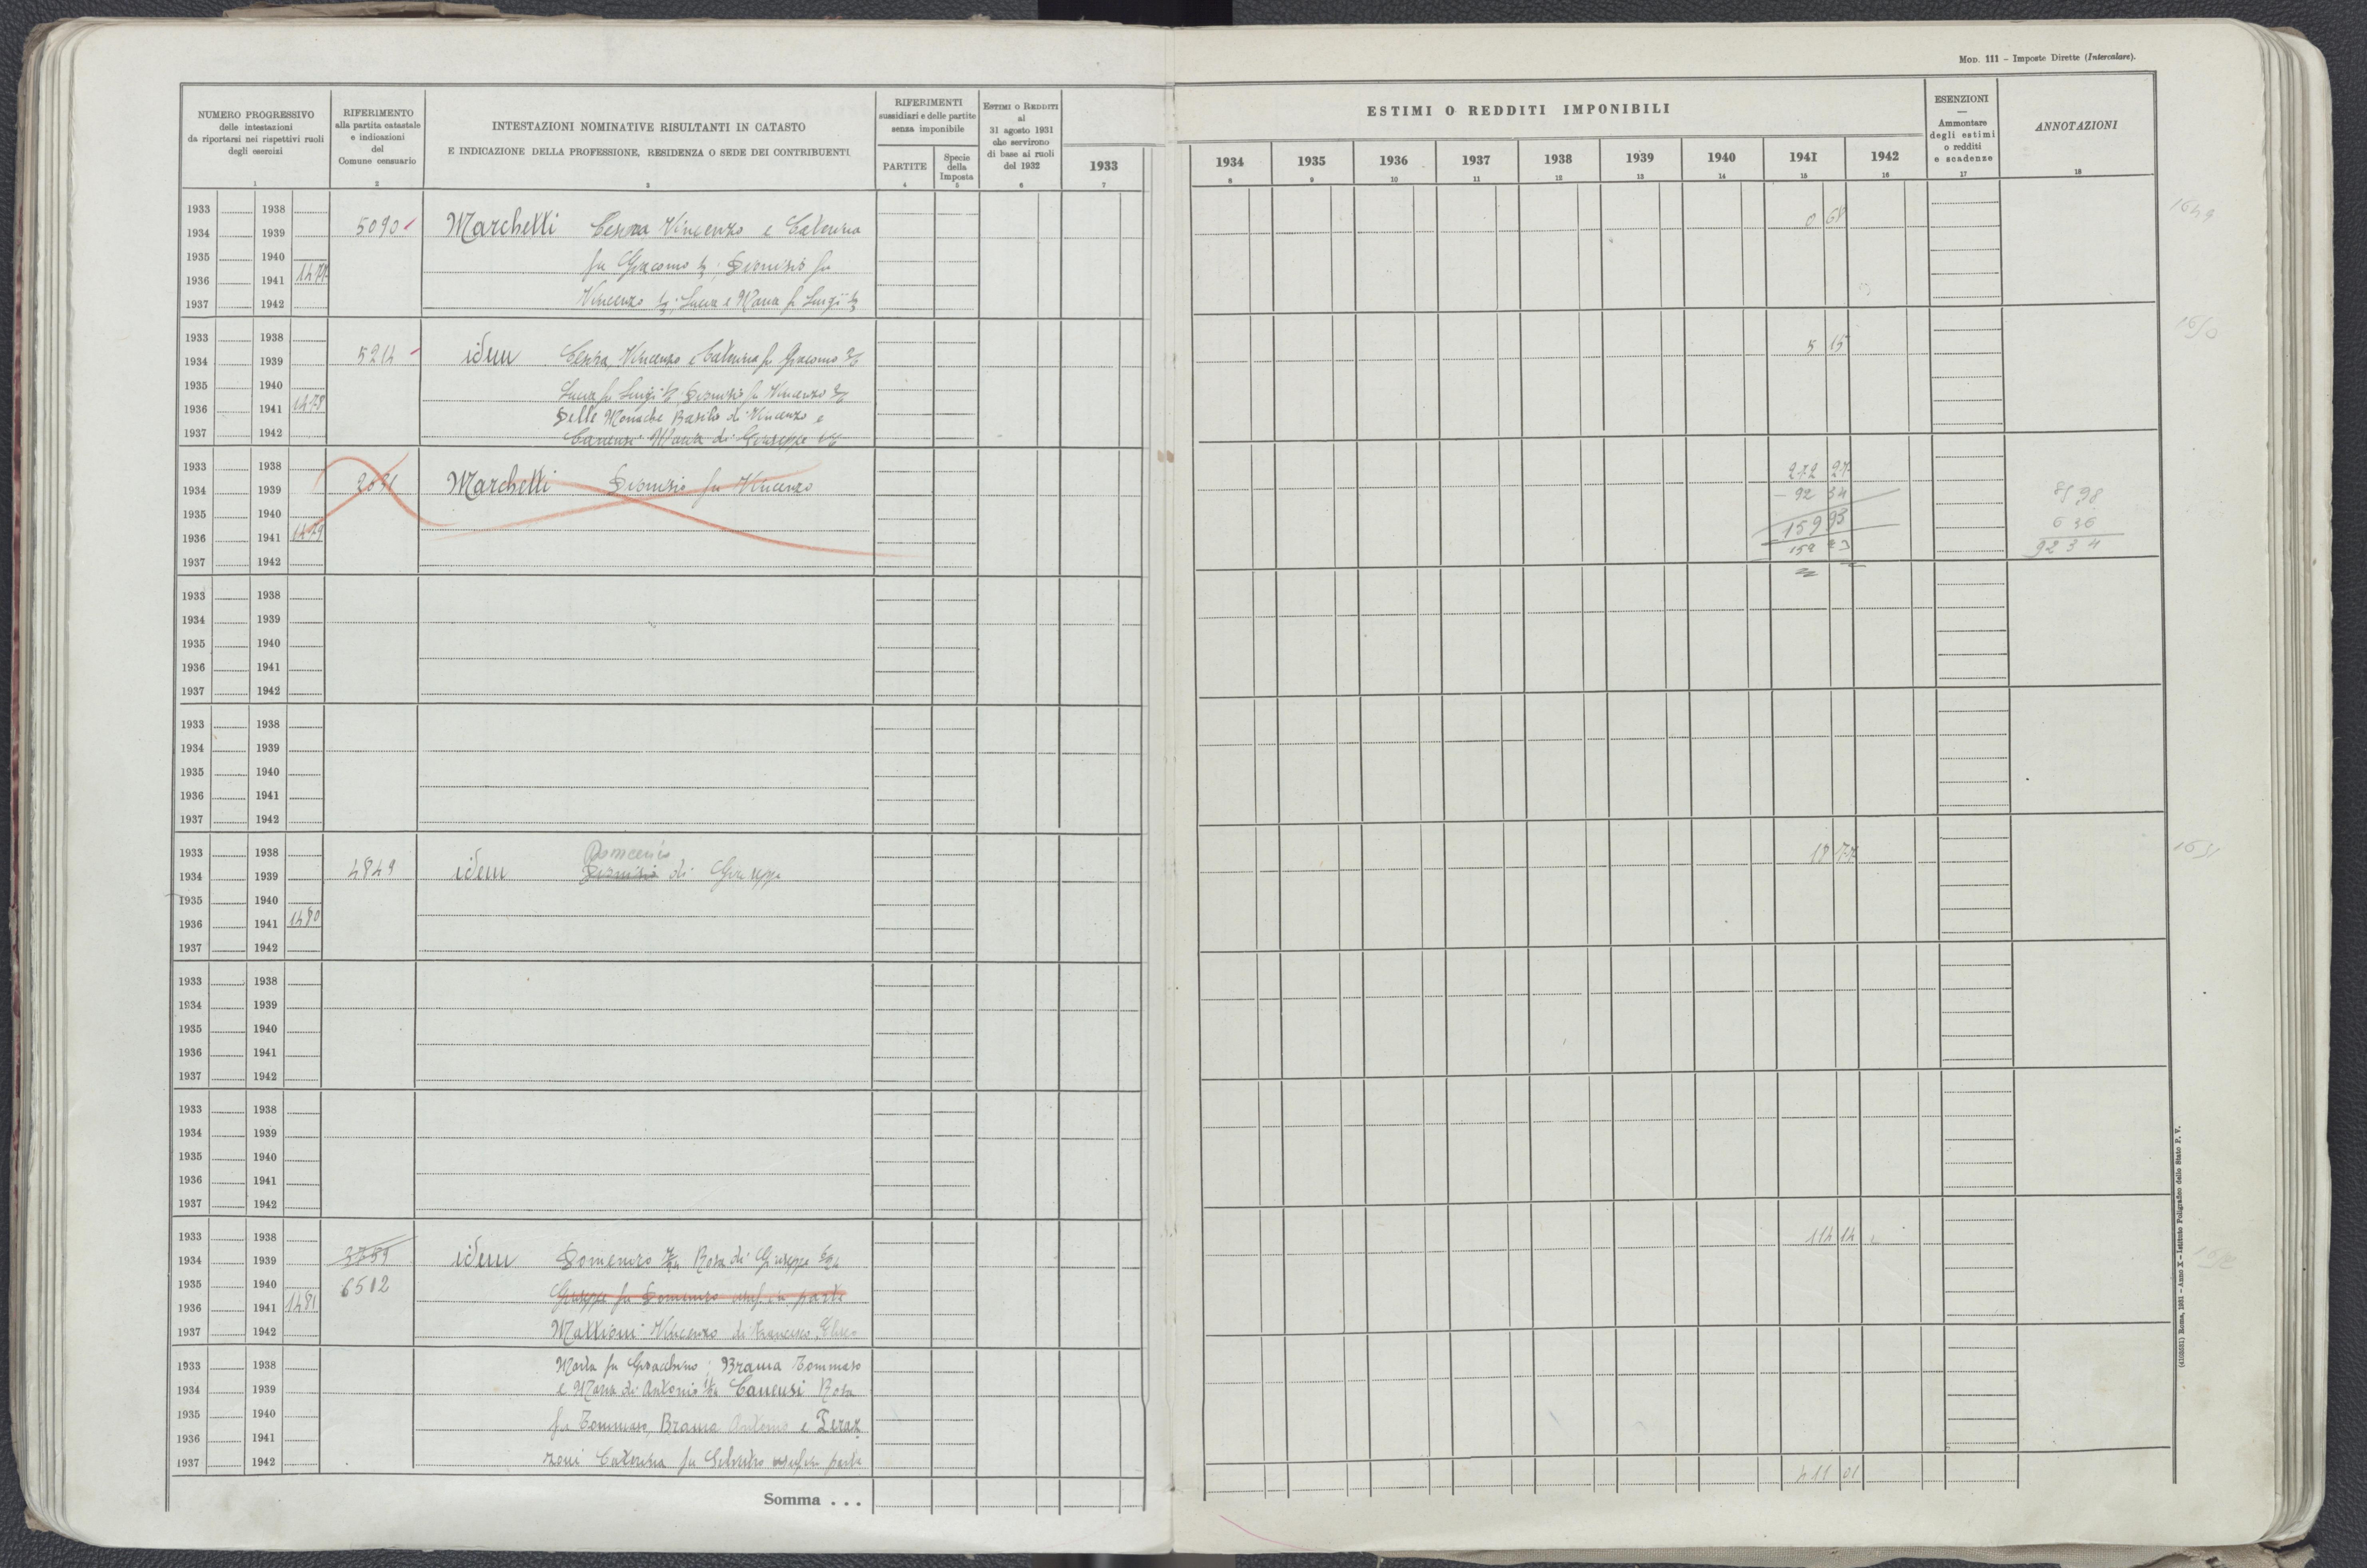 Mod. 111 – Imposte Dirette (Intercalare).
NUMERO PROGRESSIVO
delle intestazioni
da riportarsi nei rispettivi ruoli
degli esercizi
1
RIFERIMENTO
alla partita catastale
e indicazioni
del
Comune censuario
2
INTESTAZIONI NOMINATIVE RISULTANTI IN CATASTO
E INDICAZIONE DELLA PROFESSIONE, RESIDENZA O SEDE DEI CONTRIBUENTI
3
RIFERIMENTI
sussidiari e delle partite
senza imponibile
PARTITE
4
Specie
della
Imposta
5
Estimi o Redditi
al
31 agosto 1931
che servirono
di base ai ruoli
del 1932
6
1933
7
ESTIMI O REDDITI IMPONIBILI
1934 1935 1936 1937 1938 1939 1940 1941 1942
8 9 10 11 12 13 14 15 16
ESENZIONI
—
Ammontare
degli estimi
o redditi
e scadenze
17
ANNOTAZIONI
18
1933 1938
1934 1939 5090 Marchetti Vincenzo e Caterina 0 68 1649
1935 1940 fu Giacomo Dionisio fu
1936 1941 1477
1937 1942 Vincenzo Lucia e Maria fu Luigi
1933 1938
1934 1939 5214 idem Vincenzo e Caterina fu Giacomo 5 15 1650
1935 1940 Lucia fu Luigi Dionisio fu Vincenzo
1936 1941 1478 Delle Monache Basilio di Vincenzo e
1937 1942 Canensi Maria di Giuseppe
1933 1938 272 27
1934 1939 2091 Marchetti Dionisio fu Vincenzo – 92 34 85 98
1935 1940 159 93 6 36
1936 1941 1479 92 3 4
1937 1942
1933 1938
1934 1939
1935 1940
1936 1941
1937 1942
1933 1938
1934 1939
1935 1940
1936 1941
1937 1942
1933 1938 18 77 1651
1934 1939 4849 idem Dionisio di Giuseppe
1935 1940
1936 1941 1480
1937 1942
1933 1938
1934 1939
1935 1940
1936 1941
1937 1942
1933 1938
1934 1939
1935 1940
1936 1941
1937 1942
1933 1938 114 14
1934 1939 idem Domenico Rosa di Giuseppe 1652
1935 1940 6512
1936 1941 1481 Giuseppe fu Domenico usuf. in parte
1937 1942 Mattioni Vincenzo di Francesco
1933 1938 Maria fu Gioacchino; Brama Tommaso
1934 1939 e Maria di Antonio Canensi Rosa
1935 1940 fu Tommaso, Brama Antonio e Peraz
1936 1941
1937 1942 zoni Caterina fu Silvestro usuf. in parte
Somma . . . 411 01
(4102631) Roma, 1931 – Anno X – Istituto Poligrafico dello Stato P. V.